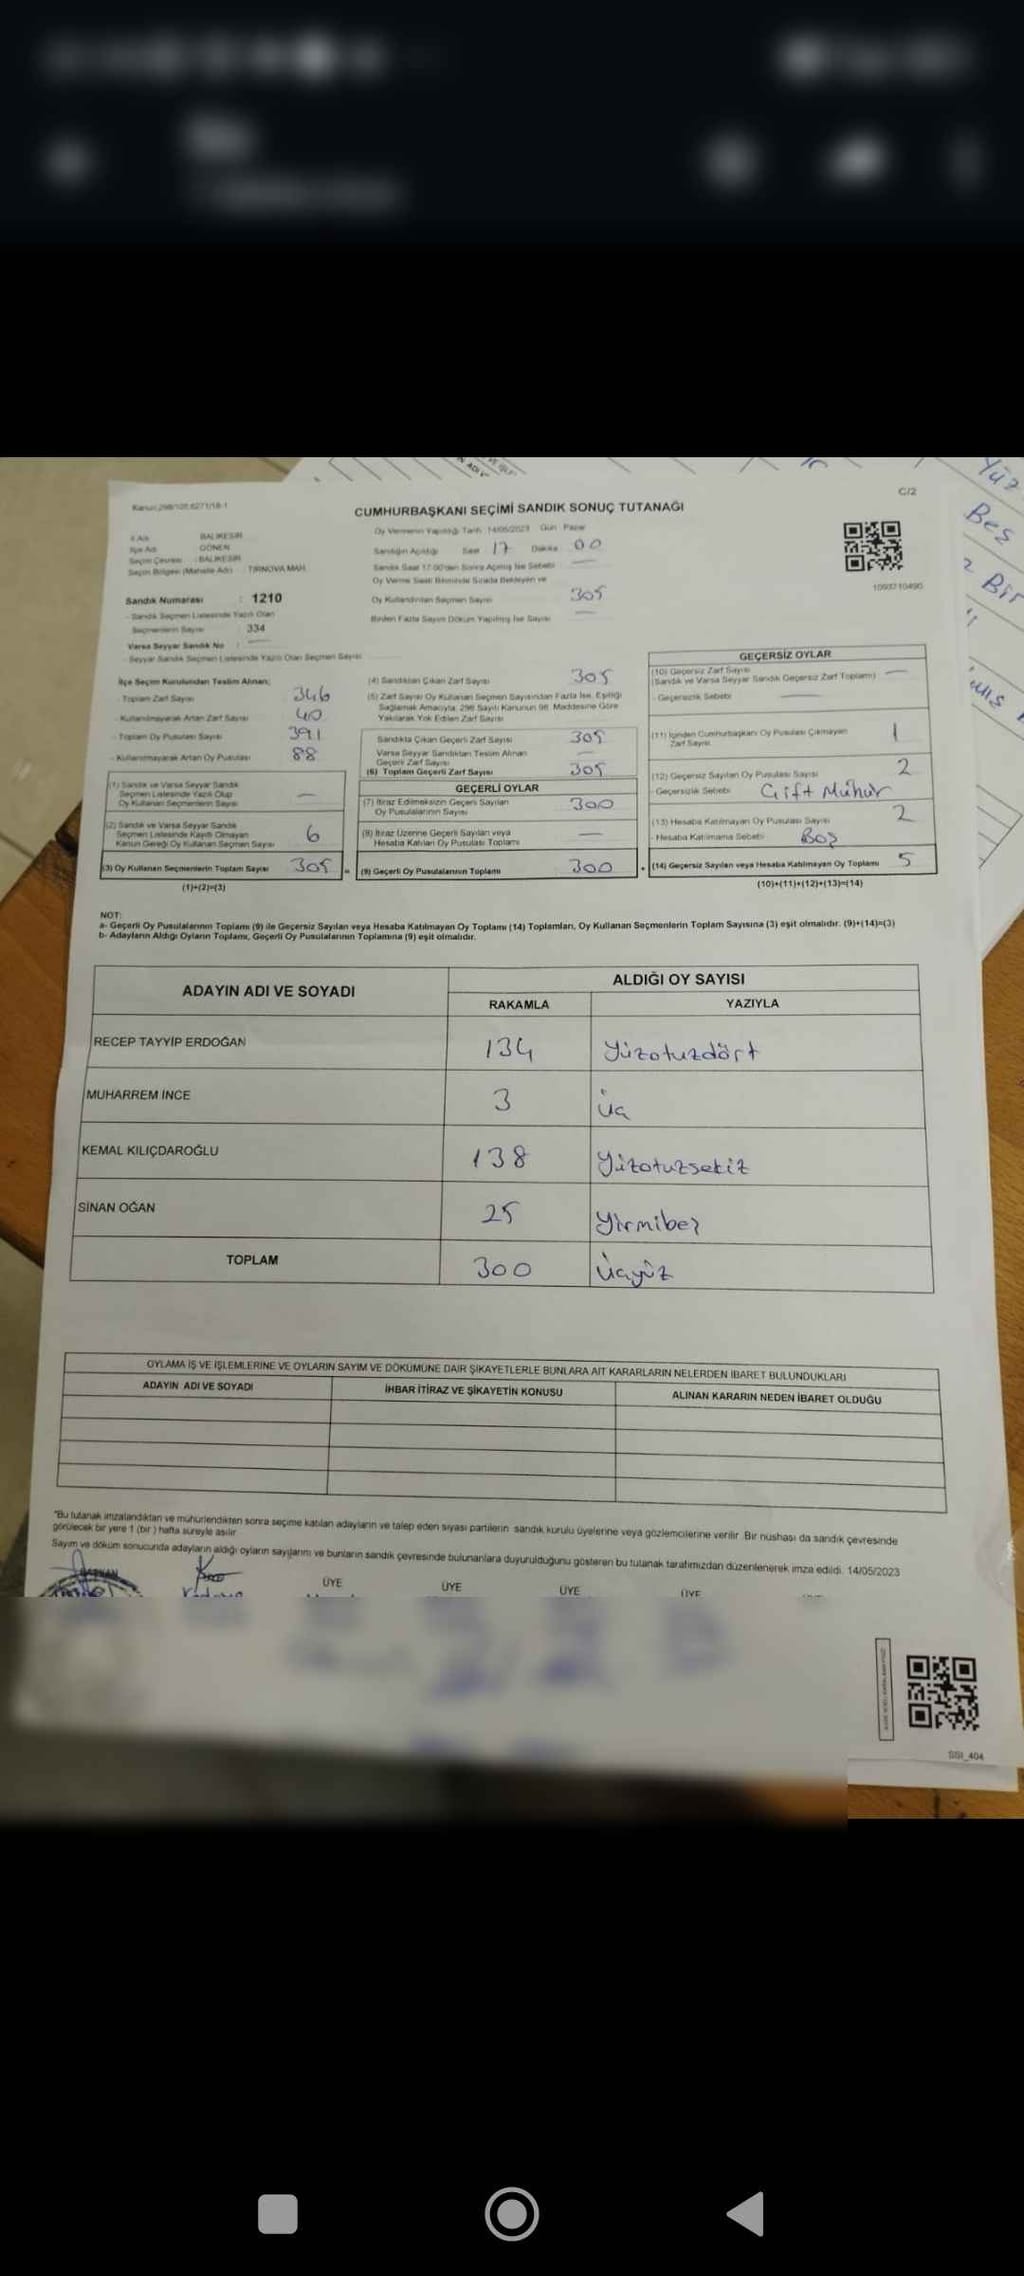 C/2
Kanun 298/105,6271/18-1
CUMHURBAŞKANI SEÇİMİ SANDIK SONUÇ TUTANAĞI
İl Adı : BALIKESİR
İlçe Adı : GÖNEN
Seçim Çevresi : BALIKESİR
Seçim Bölgesi (Mahalle Adı) : TIRNOVA MAH.
Oy Vermenin Yapıldığı Tarih 14/05/2023 Gün Pazar
Sandığın Açıldığı Saat 17 Dakika 00
Sandık Saat 17:00'den Sonra Açılmış İse Sebebi
Oy Verme Saati Bitiminde Sırada Bekleyen ve
Oy Kullandırılan Seçmen Sayısı 305
Birden Fazla Sayım Döküm Yapılmış İse Sayısı
1093710490
Sandık Numarası : 1210
Sandık Seçmen Listesinde Yazılı Olan
Seçmenlerin Sayısı : 334
Varsa Seyyar Sandık No :
Seyyar Sandık Seçmen Listesinde Yazılı Olan Seçmen Sayısı
İlçe Seçim Kurulundan Teslim Alınan;
- Toplam Zarf Sayısı 346
- Kullanılmayarak Artan Zarf Sayısı 40
- Toplam Oy Pusulası Sayısı 391
- Kullanılmayarak Artan Oy Pusulası 88
(1) Sandık ve Varsa Seyyar Sandık
Seçmen Listesinde Yazılı Olup
Oy Kullanan Seçmenlerin Sayısı —
(2) Sandık ve Varsa Seyyar Sandık
Seçmen Listesinde Kayıtlı Olmayan
Kanun Gereği Oy Kullanan Seçmen Sayısı 6
(3) Oy Kullanan Seçmenlerin Toplam Sayısı 305
(1)+(2)=(3)
(4) Sandıktan Çıkan Zarf Sayısı 305
(5) Zarf Sayısı Oy Kullanan Seçmen Sayısından Fazla İse, Eşitliği
Sağlamak Amacıyla, 298 Sayılı Kanunun 98. Maddesine Göre
Yakılarak Yok Edilen Zarf Sayısı
Sandıkta Çıkan Geçerli Zarf Sayısı 305
Varsa Seyyar Sandıktan Teslim Alınan
Geçerli Zarf Sayısı —
(6) Toplam Geçerli Zarf Sayısı 305
GEÇERLİ OYLAR
(7) İtiraz Edilmeksizin Geçerli Sayılan
Oy Pusulalarının Sayısı 300
(8) İtiraz Üzerine Geçerli Sayılan veya
Hesaba Katılan Oy Pusulası Toplamı —
(9) Geçerli Oy Pusulalarının Toplamı 300
GEÇERSİZ OYLAR
(10) Geçersiz Zarf Sayısı
(Sandık ve Varsa Seyyar Sandık Geçersiz Zarf Toplamı) —
- Geçersizlik Sebebi —
(11) İçinden Cumhurbaşkanı Oy Pusulası Çıkmayan
Zarf Sayısı 1
(12) Geçersiz Sayılan Oy Pusulası Sayısı 2
- Geçersizlik Sebebi Çift Mühür
(13) Hesaba Katılmayan Oy Pusulası Sayısı 2
- Hesaba Katılmama Sebebi Boş
(14) Geçersiz Sayılan veya Hesaba Katılmayan Oy Toplamı 5
(10)+(11)+(12)+(13)=(14)
NOT:
a- Geçerli Oy Pusulalarının Toplamı (9) ile Geçersiz Sayılan veya Hesaba Katılmayan Oy Toplamı (14) Toplamları, Oy Kullanan Seçmenlerin Toplam Sayısına (3) eşit olmalıdır. (9)+(14)=(3)
b- Adayların Aldığı Oyların Toplamı, Geçerli Oy Pusulalarının Toplamına (9) eşit olmalıdır.
ADAYIN ADI VE SOYADI
ALDIĞI OY SAYISI
RAKAMLA YAZIYLA
RECEP TAYYİP ERDOĞAN 134 Yüzotuzdört
MUHARREM İNCE 3 Üç
KEMAL KILIÇDAROĞLU 138 Yüzotuzsekiz
SİNAN OĞAN 25 Yirmibeş
TOPLAM 300 Üçyüz
OYLAMA İŞ VE İŞLEMLERİNE VE OYLARIN SAYIM VE DÖKÜMÜNE DAİR ŞİKAYETLERLE BUNLARA AİT KARARLARIN NELERDEN İBARET BULUNDUKLARI
ADAYIN ADI VE SOYADI İHBAR İTİRAZ VE ŞİKAYETİN KONUSU ALINAN KARARIN NEDEN İBARET OLDUĞU
*Bu tutanak imzalandıktan ve mühürlendikten sonra seçime katılan adayların ve talep eden siyasi partilerin sandık kurulu üyelerine veya gözlemcilerine verilir. Bir nüshası da sandık çevresinde
görülecek bir yere 1 (bir) hafta süreyle asılır.
Sayım ve döküm sonucunda adayların aldığı oyların sayılarını ve bunların sandık çevresinde bulunanlara duyurulduğunu gösteren bu tutanak tarafımızdan düzenlenerek imza edildi. 14/05/2023
BAŞKAN ÜYE ÜYE ÜYE ÜYE
SSI_404
Yüz
Beş
Bir